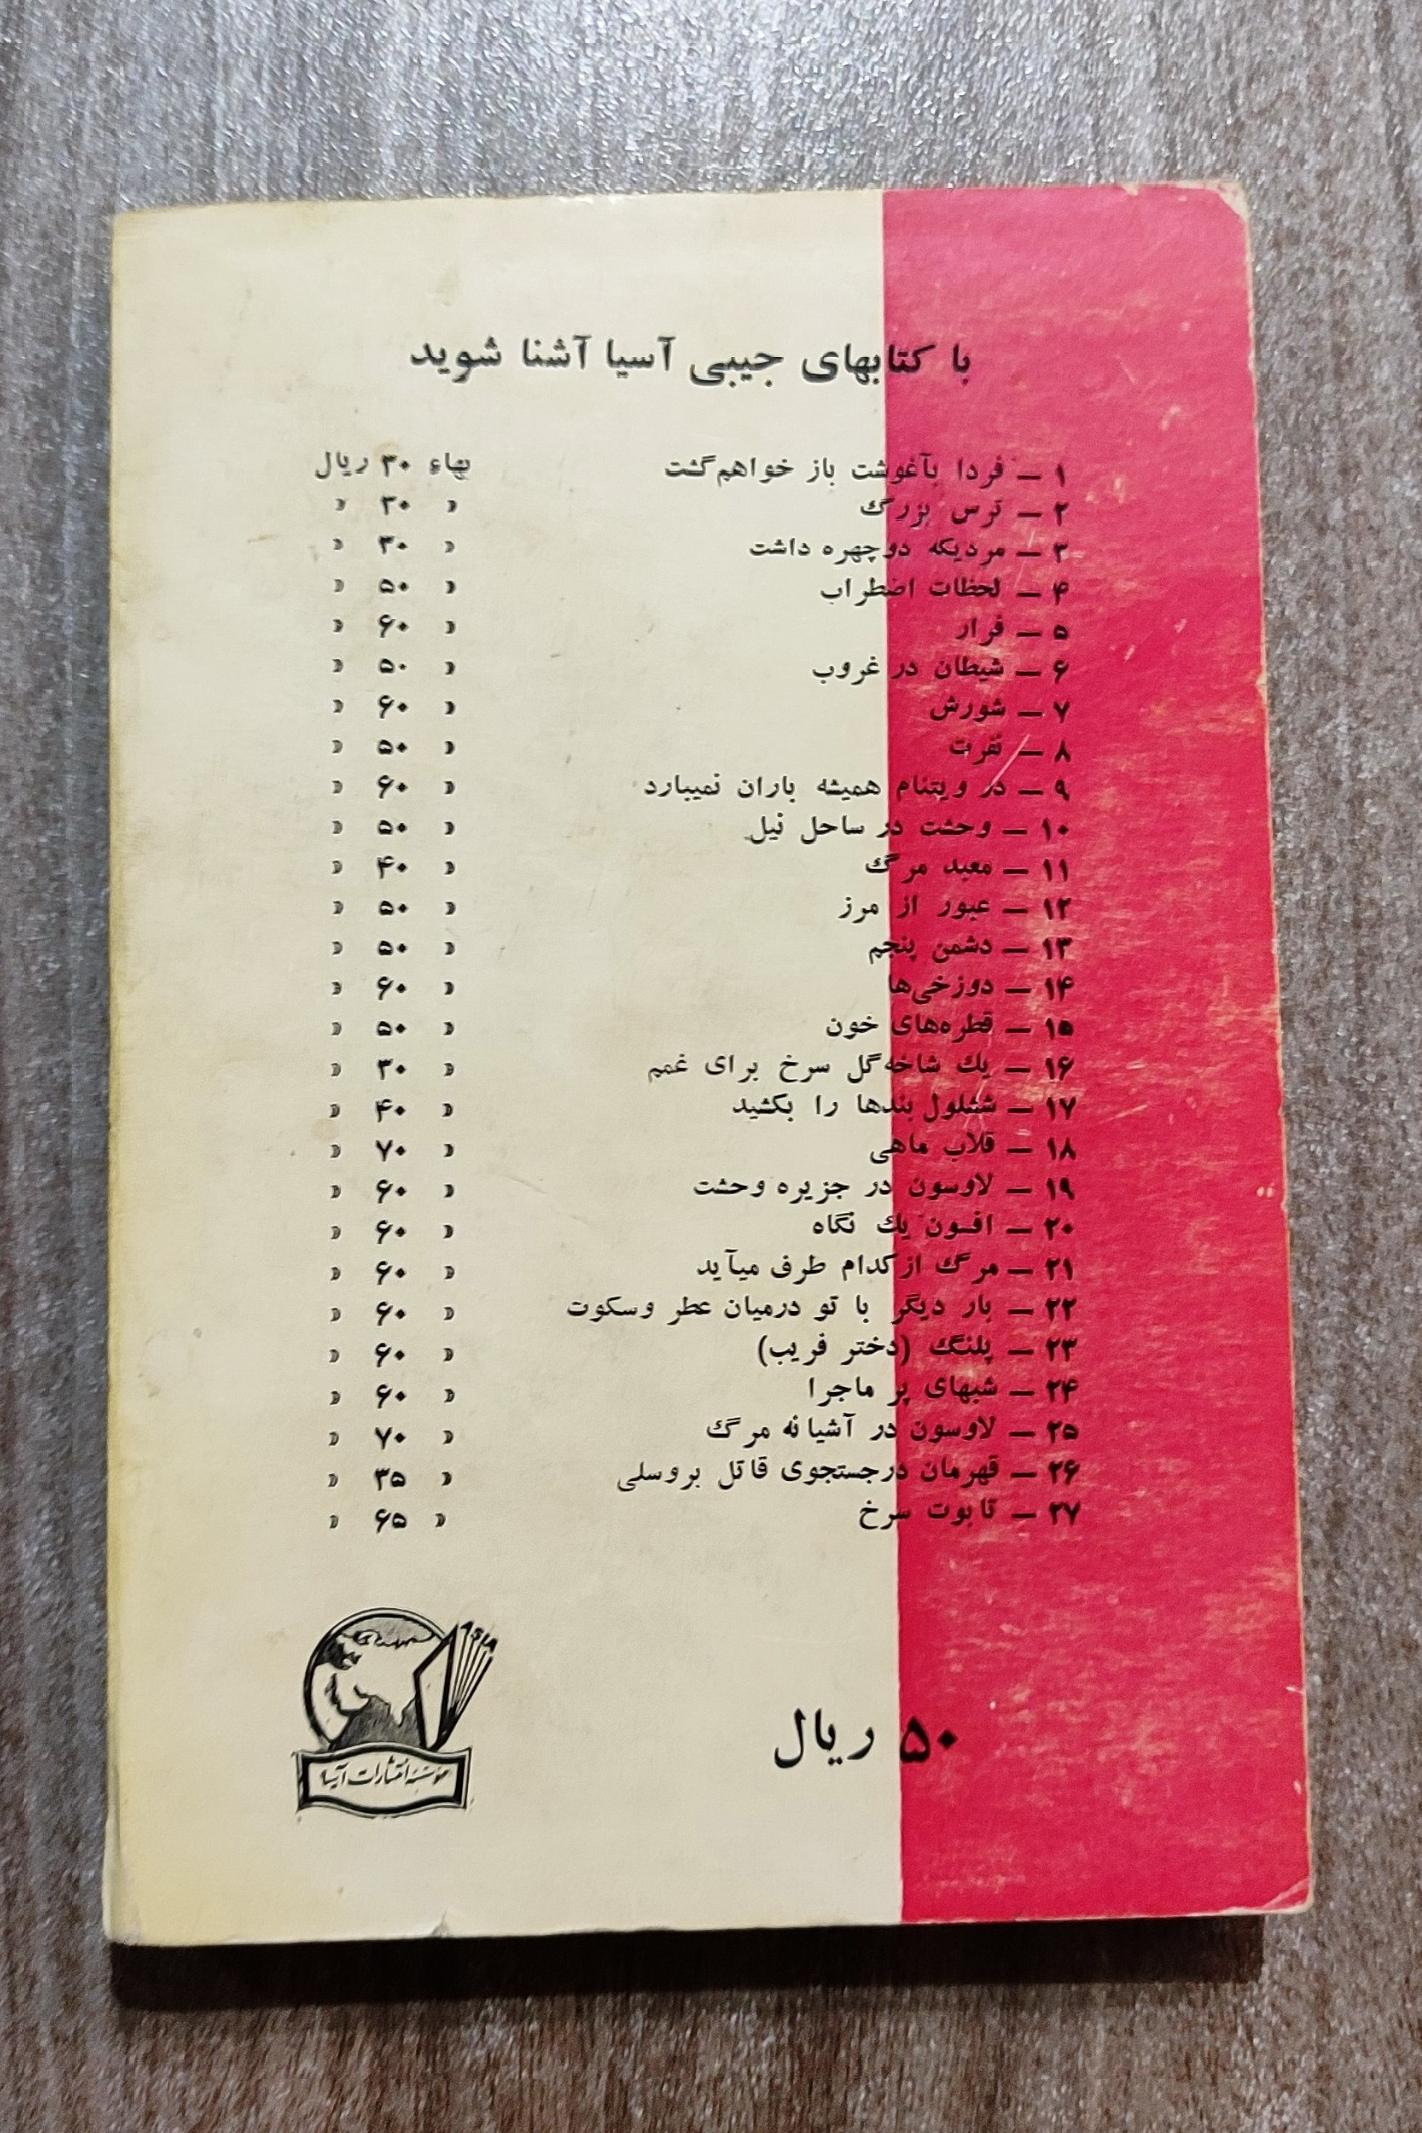 با کتابهای جیبی آسیا آشنا شوید
۱ – فردا بآغوشت باز خواهم‌گشت بهاء ۳۰ ریال
۲ – ترس بزرگ » ۳۰ »
۳ – مردیکه دوچهره داشت » ۳۰ »
۴ – لحظات اضطراب » ۵۰ »
۵ – فرار » ۶۰ »
۶ – شیطان در غروب » ۵۰ »
۷ – شورش » ۶۰ »
۸ – نفرت » ۵۰ »
۹ – در ویتنام همیشه باران نمیبارد » ۶۰ »
۱۰ – وحشت در ساحل نیل » ۵۰ »
۱۱ – معبد مرگ » ۴۰ »
۱۲ – عبور از مرز » ۵۰ »
۱۳ – دشمن پنجم » ۵۰ »
۱۴ – دوزخی‌ها » ۶۰ »
۱۵ – قطره‌های خون » ۵۰ »
۱۶ – یك شاخه‌گل سرخ برای غمم » ۳۰ »
۱۷ – ششلول بندها را بکشید » ۴۰ »
۱۸ – قلاب ماهی » ۷۰ »
۱۹ – لاوسون در جزیره وحشت » ۶۰ »
۲۰ – افسون یك نگاه » ۶۰ »
۲۱ – مرگ از کدام طرف میآید » ۶۰ »
۲۲ – بار دیگر با تو درمیان عطر وسکوت » ۶۰ »
۲۳ – پلنگ (دختر فریب) » ۶۰ »
۲۴ – شبهای پر ماجرا » ۶۰ »
۲۵ – لاوسون در آشیانه مرگ » ۷۰ »
۲۶ – قهرمان درجستجوی قاتل بروسلی » ۳۵ »
۲۷ – تابوت سرخ » ۶۵ »
ASIA
۵۰ ریال
مؤسسه انتشارات آسیا